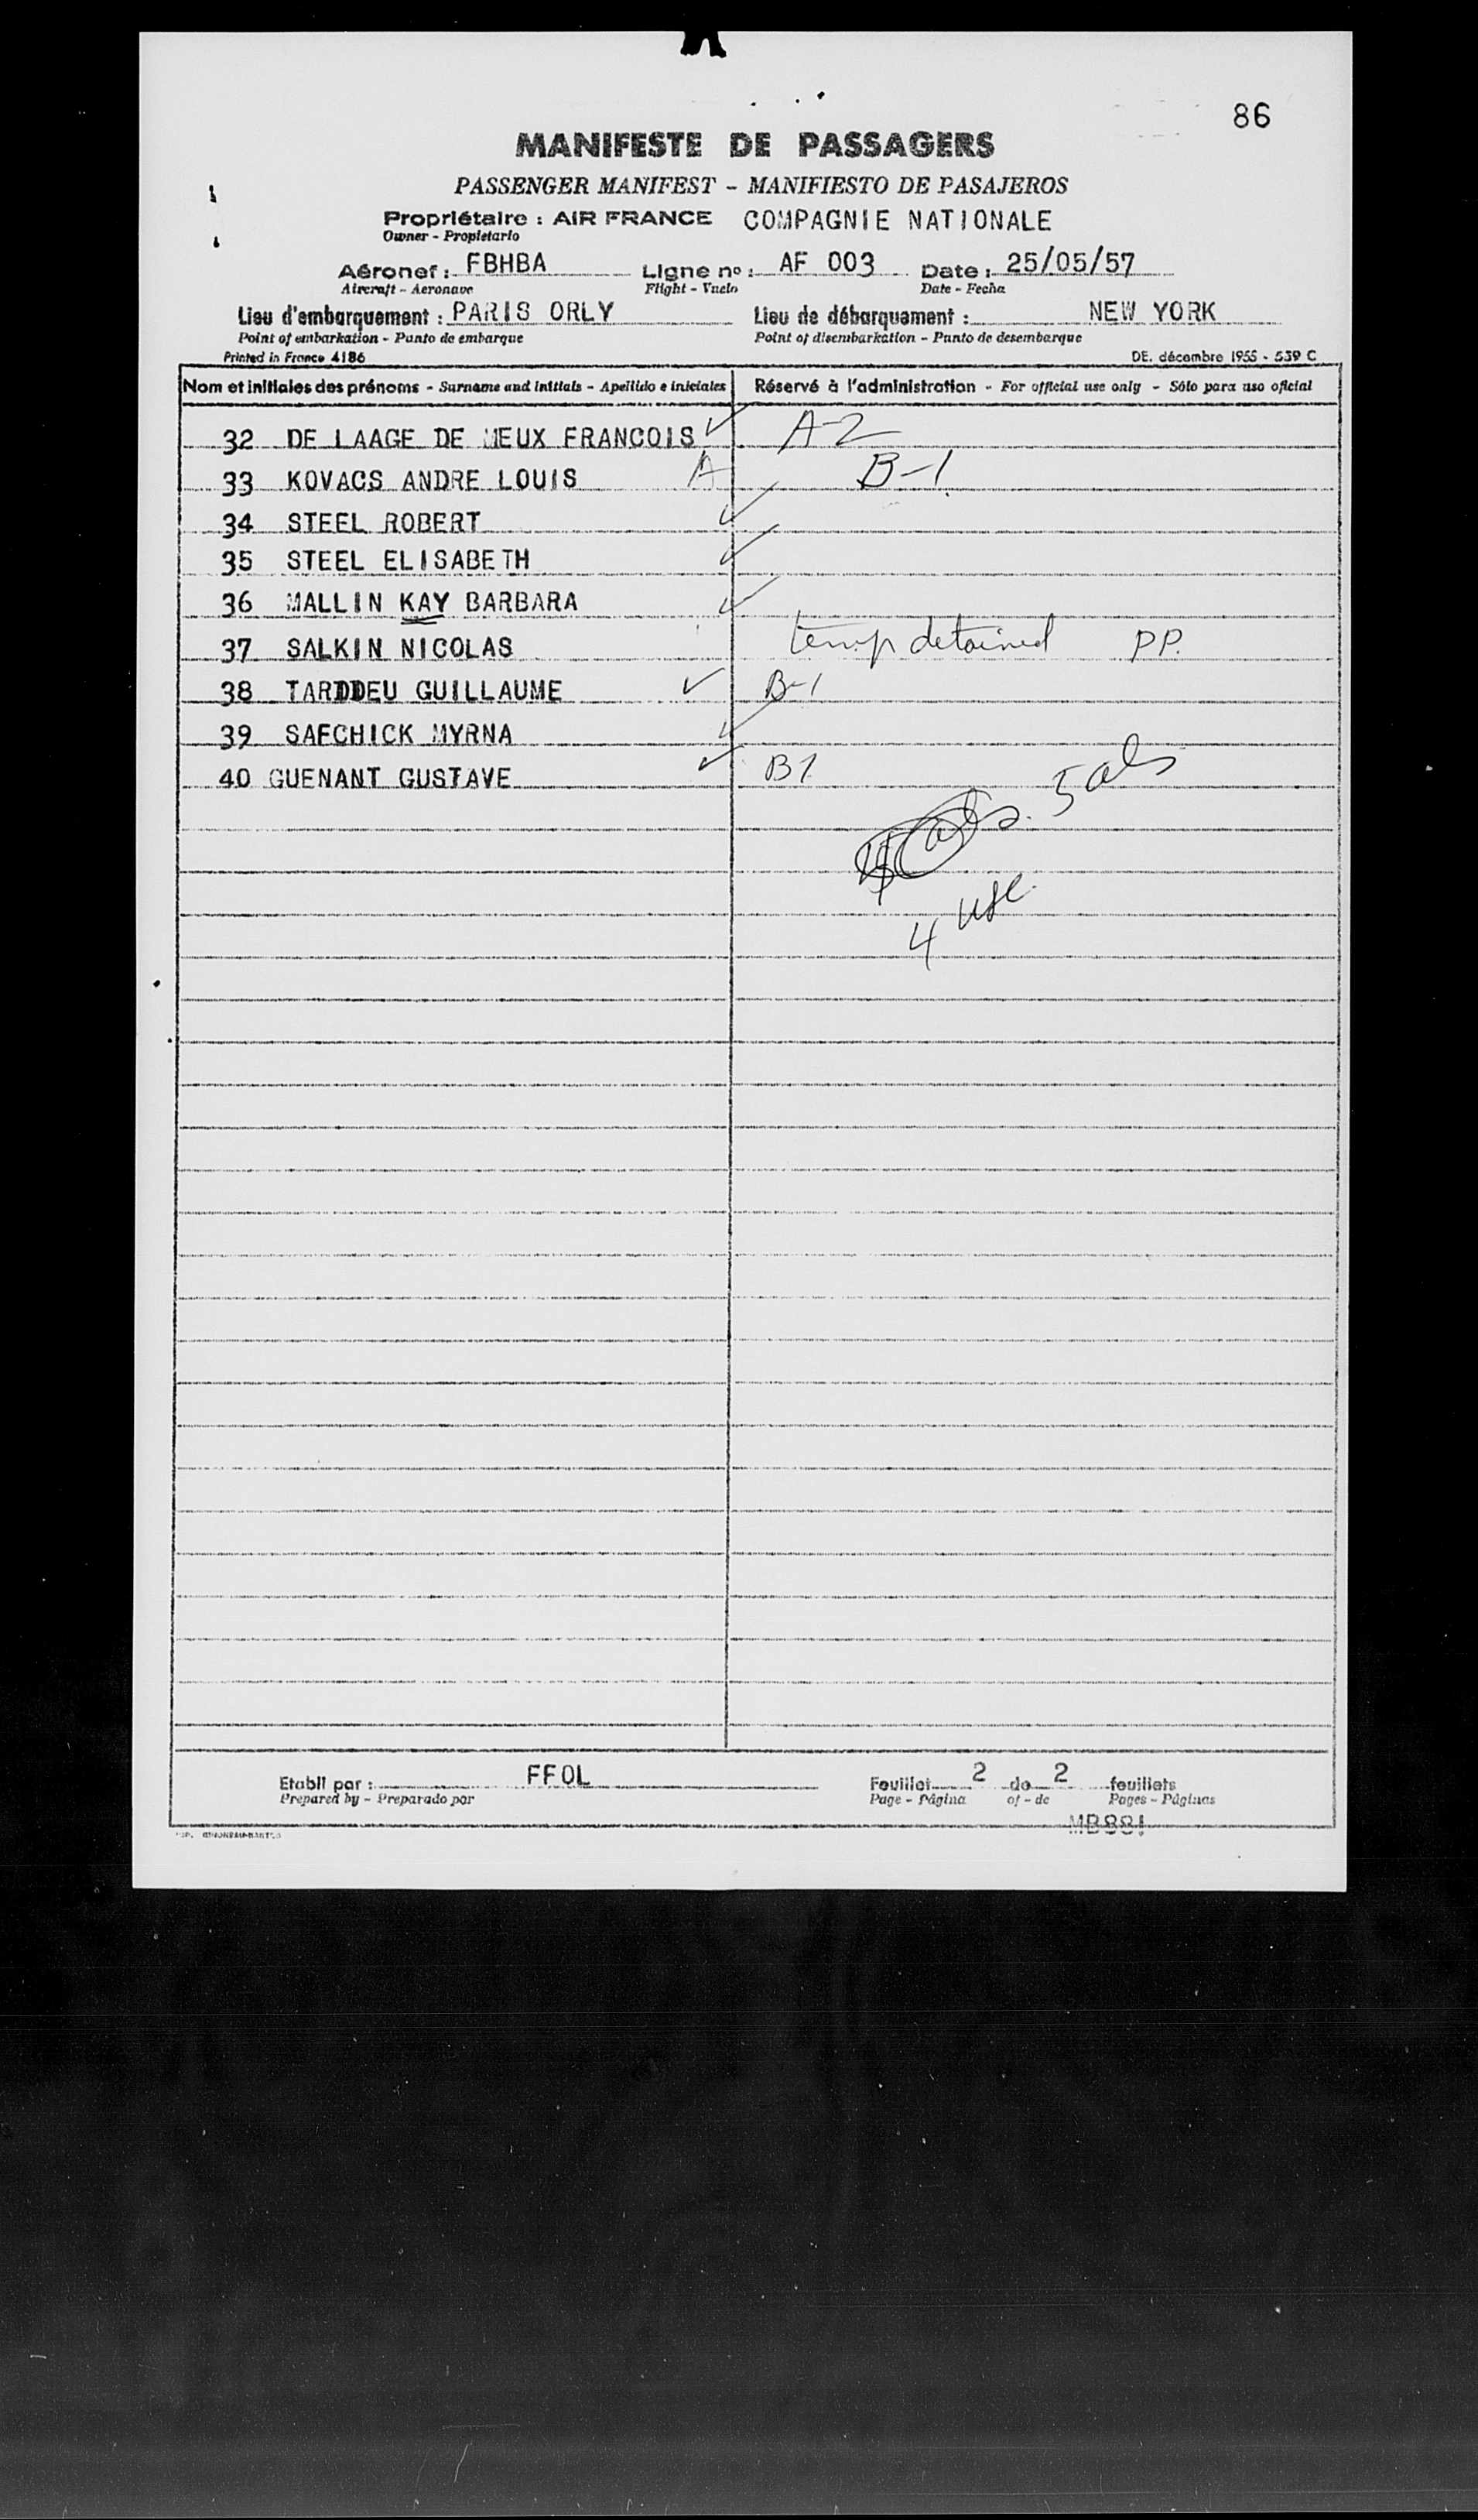 86
MANIFESTE DE PASSAGERS
PASSENGER MANIFEST - MANIFIESTO DE PASAJEROS
Propriétaire : AIR FRANCE COMPAGNIE NATIONALE
Owner - Propietario
Aéronef : FBHBA Ligne no : AF 003 Date : 25/05/57
Aircraft - Aeronave Flight - Vuelo Date - Fecha
Lieu d'embarquement : PARIS ORLY Lieu de débarquement : NEW YORK
Point of embarkation - Punto de embarque Point of disembarkation - Punto de desembarque
Printed in France 4186 DE. décembre 1955 - 539 C
Nom et initiales des prénoms - Surname and initials - Apellido e iniciales Réservé à l'administration - For official use only - Sólo para uso oficial
32 DE LAAGE DE MEUX FRANCOIS ✓ A-2
33 KOVACS ANDRE LOUIS A B-1
34 STEEL ROBERT ✓
35 STEEL ELISABETH ✓
36 MALLIN KAY BARBARA ✓
37 SALKIN NICOLAS temp detained P.P.
38 TARDDEU GUILLAUME ✓ B-1
39 SAFCHICK MYRNA ✓
40 GUENANT GUSTAVE ✓ B1
5 als
4 usc
Etabli par : FFOL Feuillet 2 de 2 feuillets
Prepared by - Preparado por Page - Página of - de Pages - Páginas